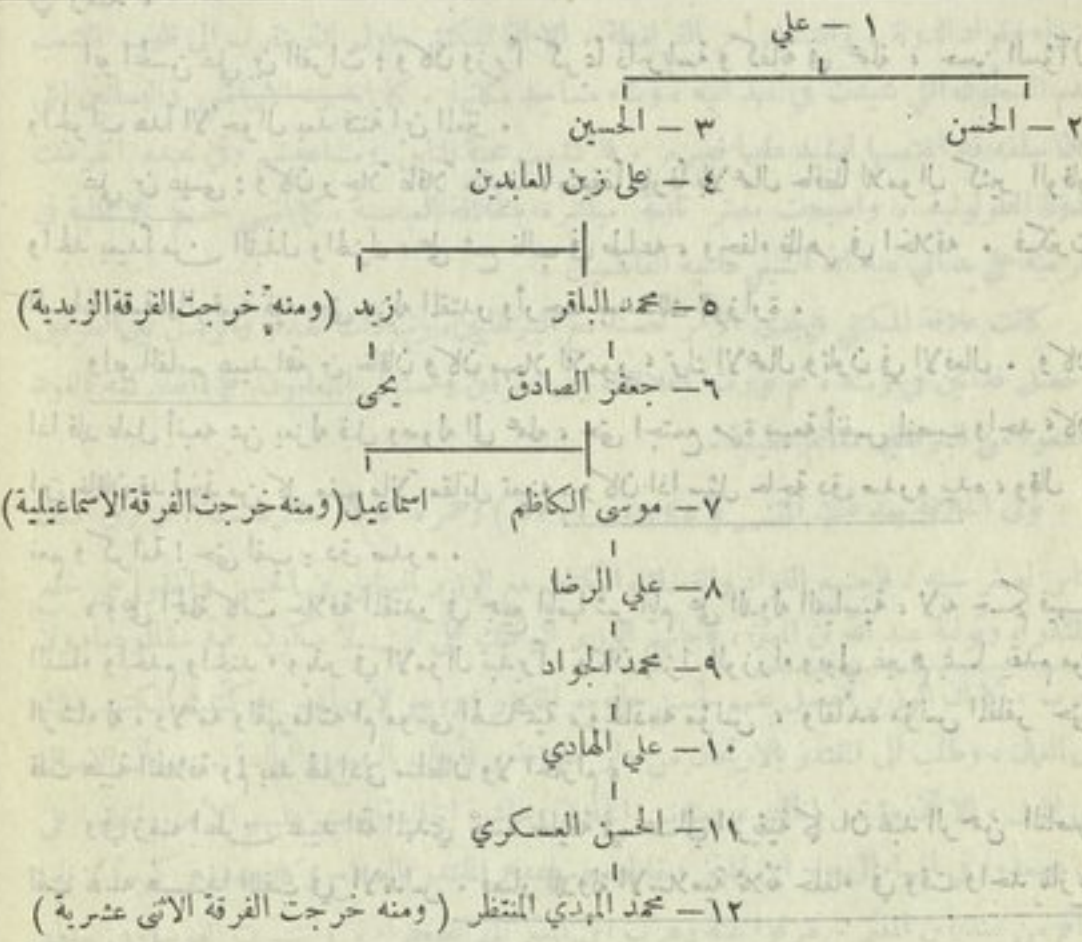 ١ — علي
٢ — الحسن ٣ — الحسين
٤ — علي زين العابدين
٥ — محمد الباقر زيد (ومنه خرجت الفرقة الزيدية)
٦ — جعفر الصادق يحيى
٧ — موسى الكاظم اسماعيل (ومنه خرجت الفرقة الاسماعيلية)
٨ — علي الرضا
٩ — محمد الجواد
١٠ — علي الهادي
١١ — الحسن العسكري
١٢ — محمد المهدي المنتظر ( ومنه خرجت الفرقة الاثنى عشرية )